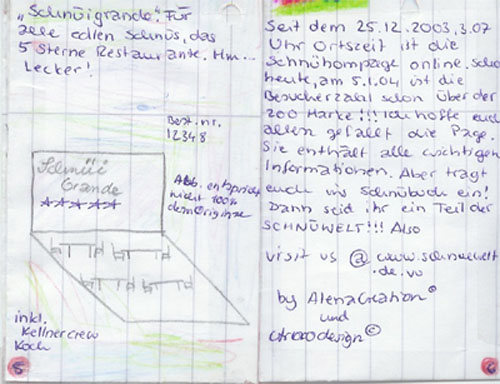 „Schnüigrande". Für
alle edlen Schnüs, das
5 Sterne Restaurante. Hm...
Lecker!
Best.nr.
12348
Schnüü
Grande
Abb. entspricht
nicht 100%
dem Original
inkl.
Kellnercrew
Koch
5
Seit dem 25.12.2003, 3.07
Uhr Ortszeit ist die
Schnühompage online. Schon
heute, am 5.1.04 ist die
Besucherzahl schon über der
200 Marke!!! Ich hoffe euch
allen gefällt die Page.
Sie enthält alle wichtigen
Informationen. Aber tragt
euch ins Schnübuch ein!
Dann seid ihr ein Teil der
SCHNÜWELT!!! Also
visit us @ www.schnuewelt
.de.vu
by AlenaCreation©
und
design©
6